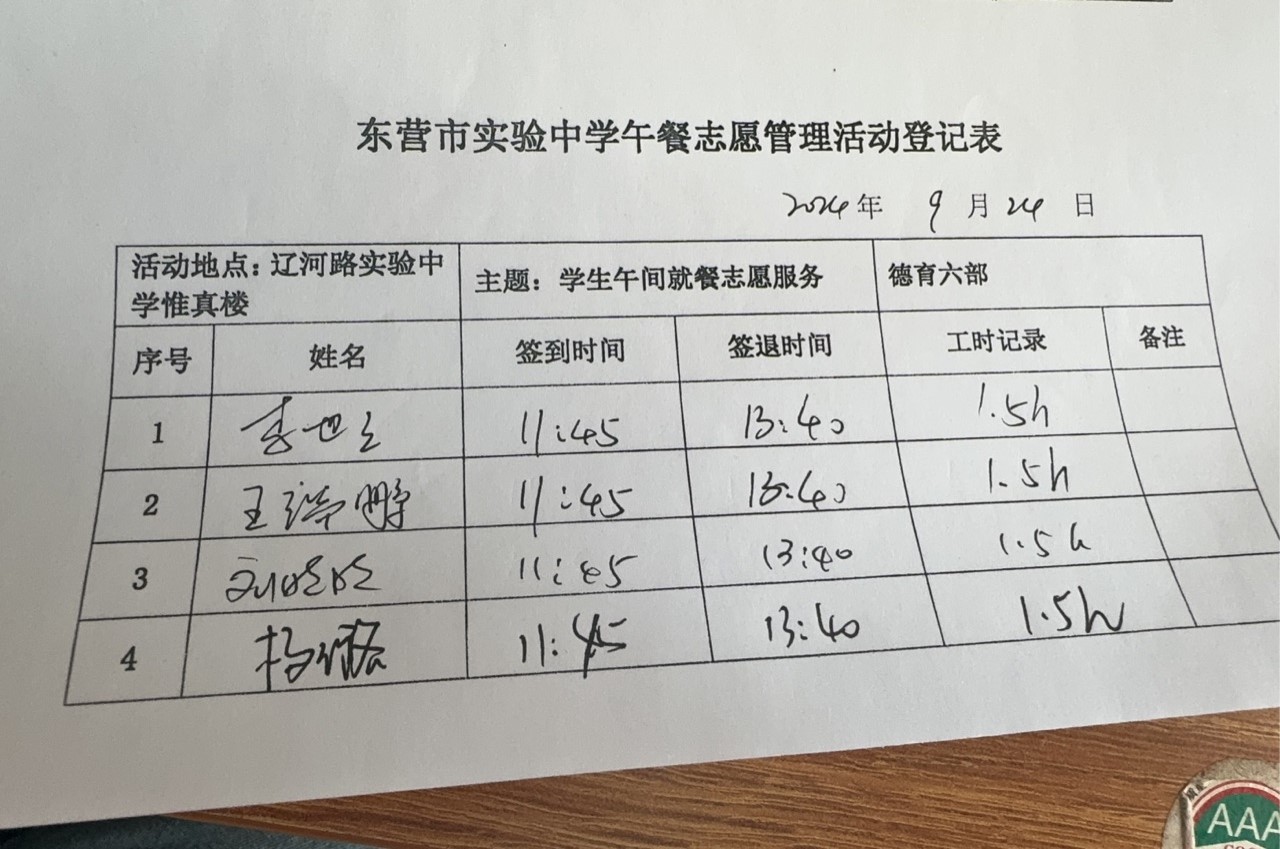 东营市实验中学午餐志愿管理活动登记表
2024年 9月24日
活动地点：辽河路实验中学惟真楼 主题：学生午间就餐志愿服务 德育六部
序号 姓名 签到时间 签退时间 工时记录 备注
1 李世 11:45 13:40 1.5h
2 王瑞鹏 11:45 13:40 1.5h
3 刘晓 11:45 13:40 1.5h
4 杨 11:45 13:40 1.5h
AAA